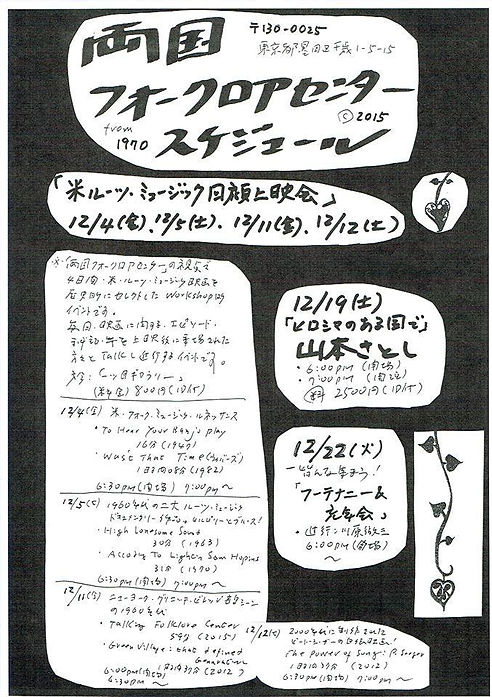 両国
〒130-0025
東京都墨田区千歳1-5-15
フォークロアセンター
©2015
from
1970
スケジュール
「米ルーツ・ミュージック回顧上映会」
12/4(金)、12/5(土)、12/11(金)、12/12(土)
※「両国フォークロアセンター」の視点で
4日間・米・ルーツ・ミュージック映画を
歴史的にセレクトした Workshop的
イベントです。
毎日、映画に関する、エピソード・
を上映後に来場された
方々とTalkし進行するイベントです。
(料金) 800円(1D付)
12/4(金) 米・フォーク・ミュージック・ルネッサンス
・To Hear Your Banjo Play
16分(1947)
・Wasn't That Time
(1982)
6:30PM(開場) 7:00PM〜
12/5(土) 1960年代の二大ルーツ・ミュージック
・High Lonesome Sound
30分(1963)
・Accordig To Lightn'n Sam Hopkins
31分(1970)
6:30PM(開場) 7:00PM〜
12/11(金) ニューヨーク・グリニッチ・ビレッジ音楽シーン
の1960年代
・Talking Folklore Center
(2015)
・Green Village: that defined
Generation
(2012)
6:00PM(開場)
6:30PM〜
12/19(土)
「ヒロシマのある国で」
山本さとし
・6:00PM(開場)
・7:00PM(開演)
料 2500円(1D付)
12/22(火)
一皆んな集まろう!
「フーテナニー&
忘年会」
・進行:川原徹三
6:00PM(開場)
〜
12/12(土) 2000年代に制作された
ピート・シーガーの自伝映画!
The Power of Song: P. Seeger
(2012)
6:30PM(開場) 7:00PM〜